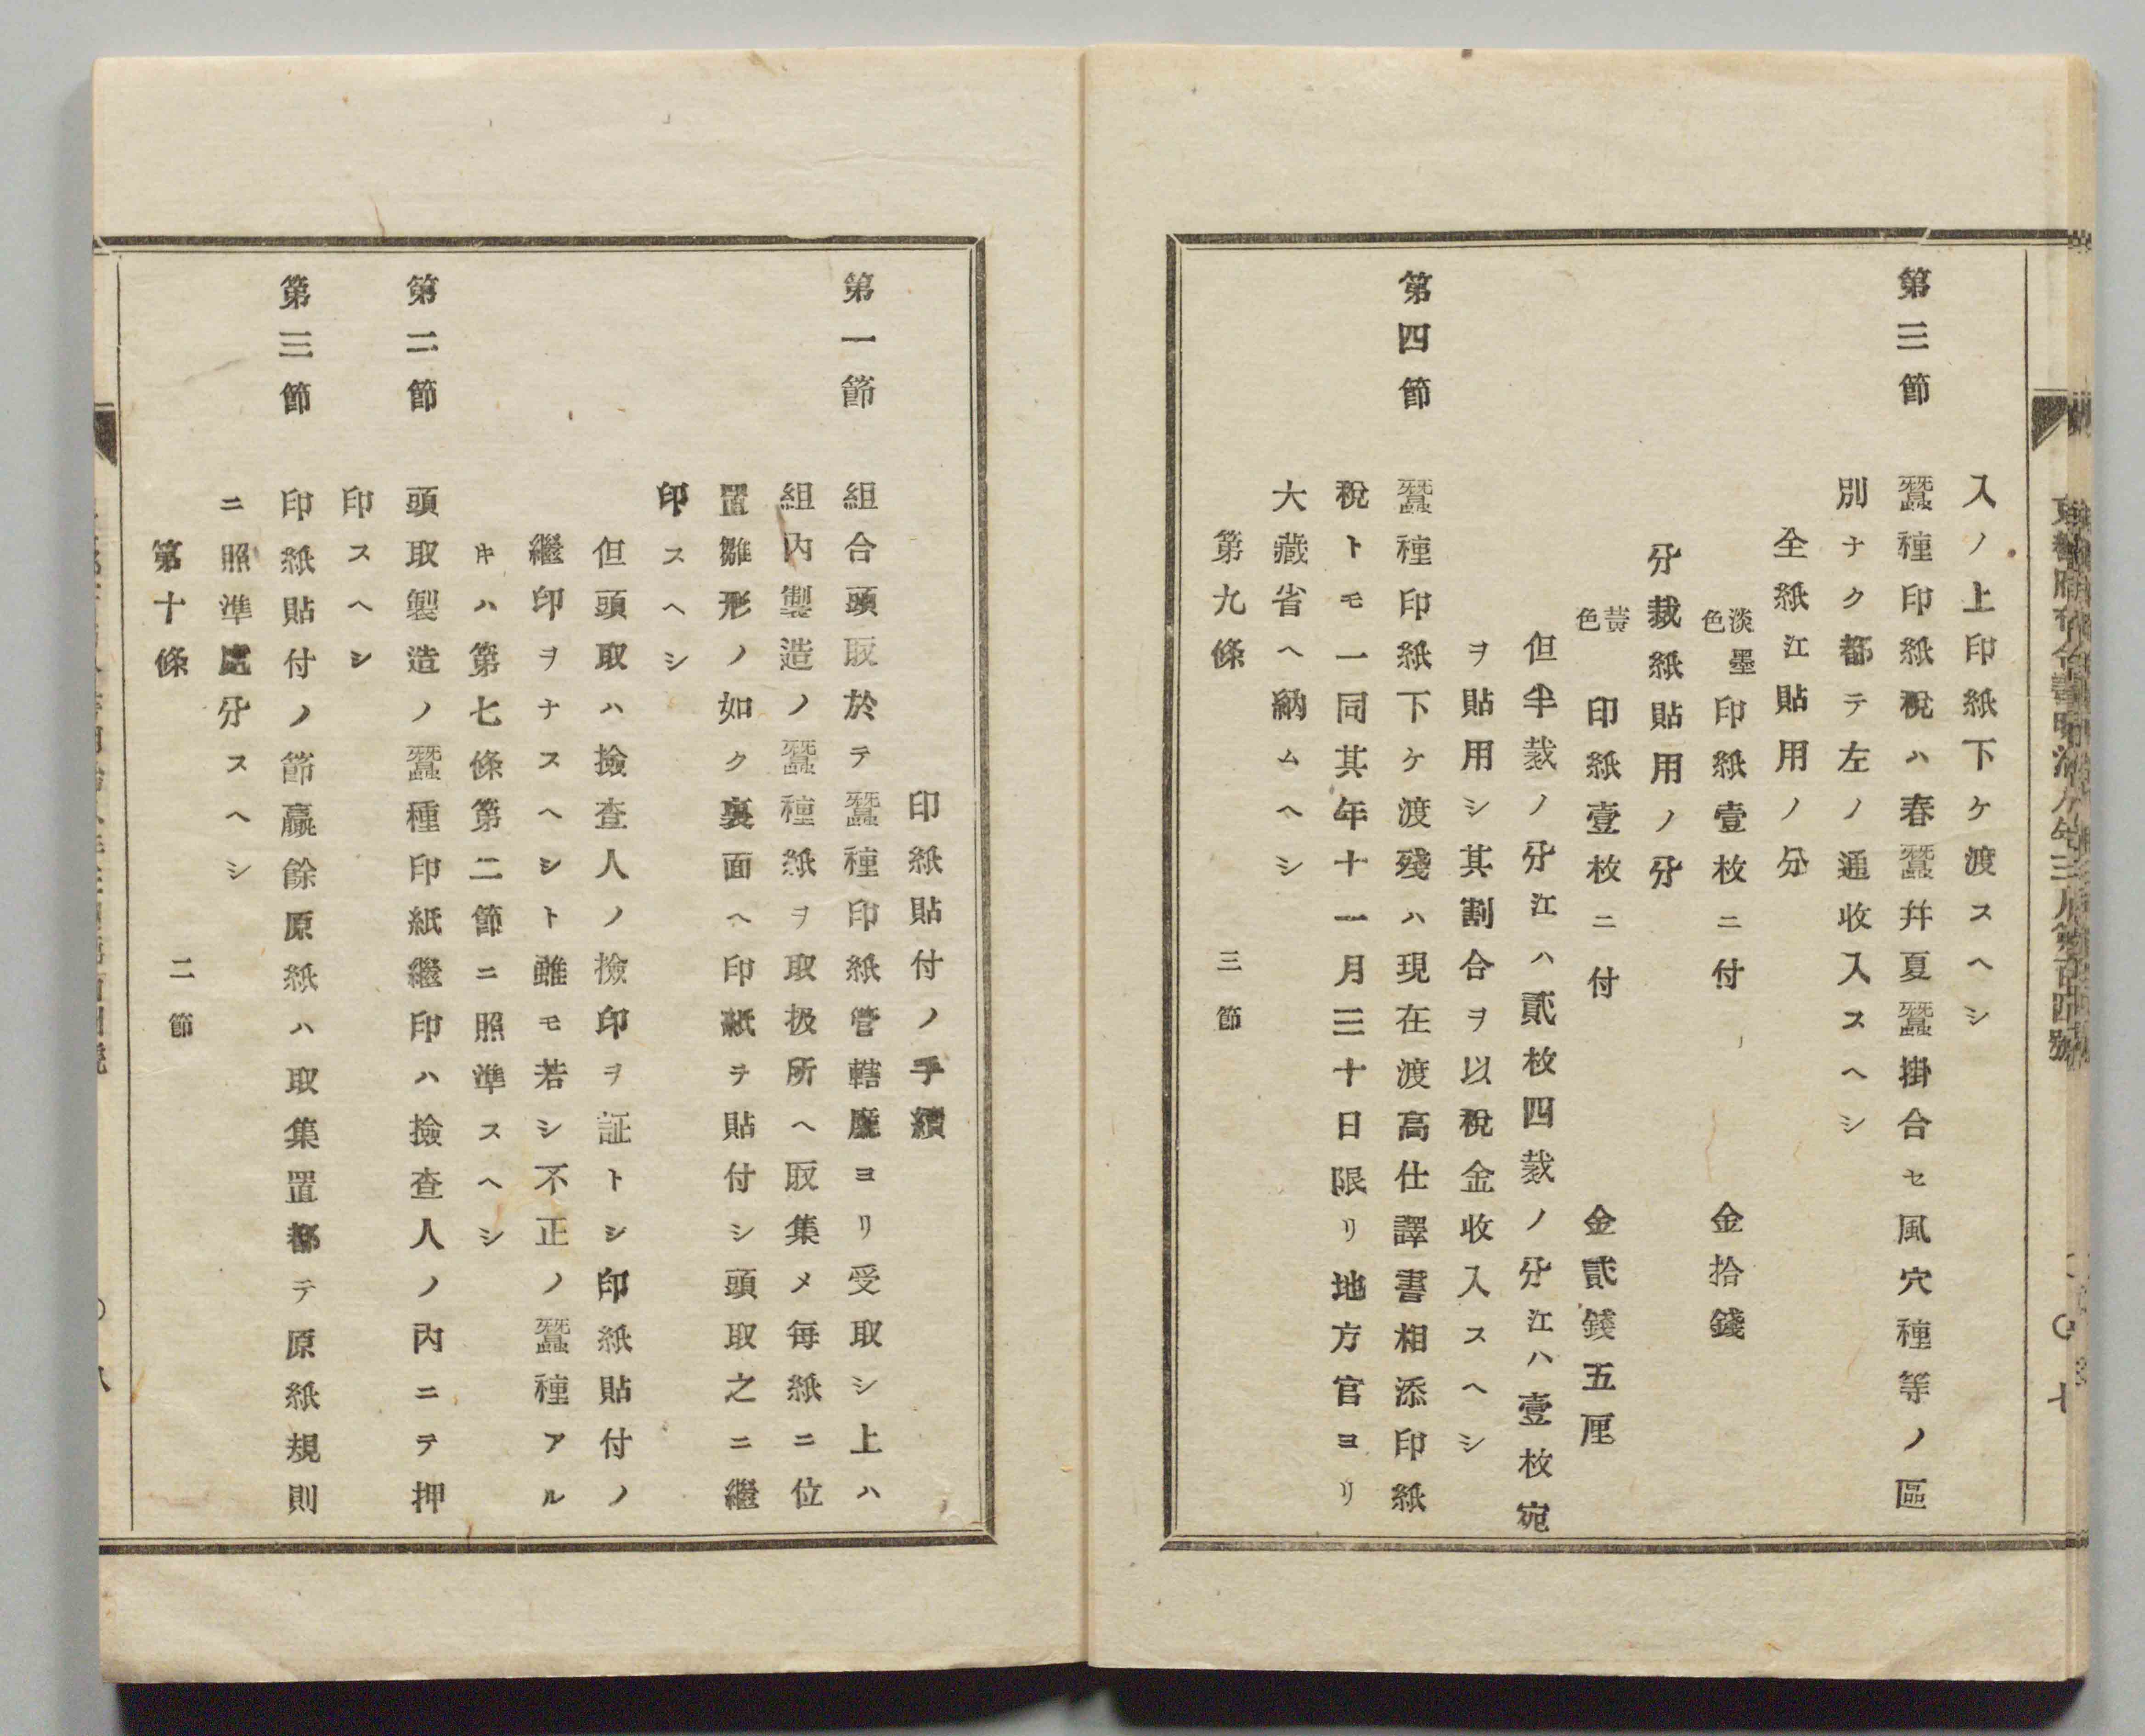 入ノ上印紙下ケ渡スヘシ
第三節 蠶種印紙税ハ春蠶幷夏蠶掛合セ風穴種等ノ區
別ナク都テ左ノ通收入スヘシ
全紙江貼用ノ分
淡墨色 印紙壹枚ニ付 金拾錢
分裁紙貼用ノ分
黃色 印紙壹枚ニ付 金貳錢五厘
但半裁ノ分江ハ貳枚四裁ノ分江ハ壹枚宛
ヲ貼用シ其割合ヲ以税金收入スヘシ
第四節 蠶種印紙下ケ渡殘ハ現在渡高仕譯書相添印紙
税トモ一同其年十一月三十日限リ地方官ヨリ
大藏省ヘ納ムヘシ
第九條 三節
印紙貼付ノ手續
第一節 組合頭取於テ蠶種印紙管轄廳ヨリ受取シ上ハ
組内製造ノ蠶種紙ヲ取扱所ヘ取集メ毎紙ニ位
置雛形ノ如ク裏面ヘ印紙ヲ貼付シ頭取之ニ繼
印スヘシ
但頭取ハ撿査人ノ撿印ヲ証トシ印紙貼付ノ
繼印ヲナスヘシト雖モ若シ不正ノ蠶種アル
キハ第七條第二節ニ照準スヘシ
第二節 頭取製造ノ蠶種印紙繼印ハ撿査人ノ内ニテ押
印スヘシ
第三節 印紙貼付ノ節贏餘原紙ハ取集置都テ原紙規則
ニ照準處分スヘシ
第十條 二節